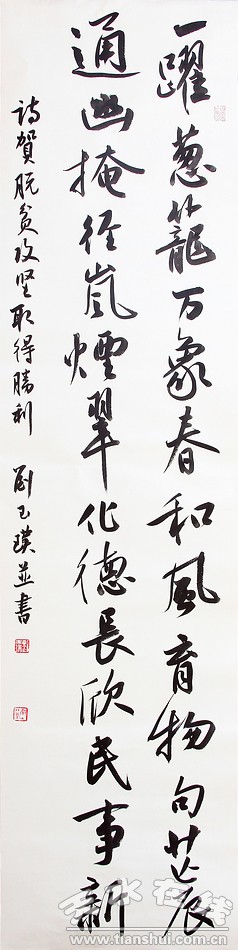 一躍葱籠万象春和風育物句芒辰
通幽掩径嵐煙翠化德長欣民事新
詩賀脱贫攻坚取得勝利 劉玉璞並書
天水在线
www.tianshui.com.cn